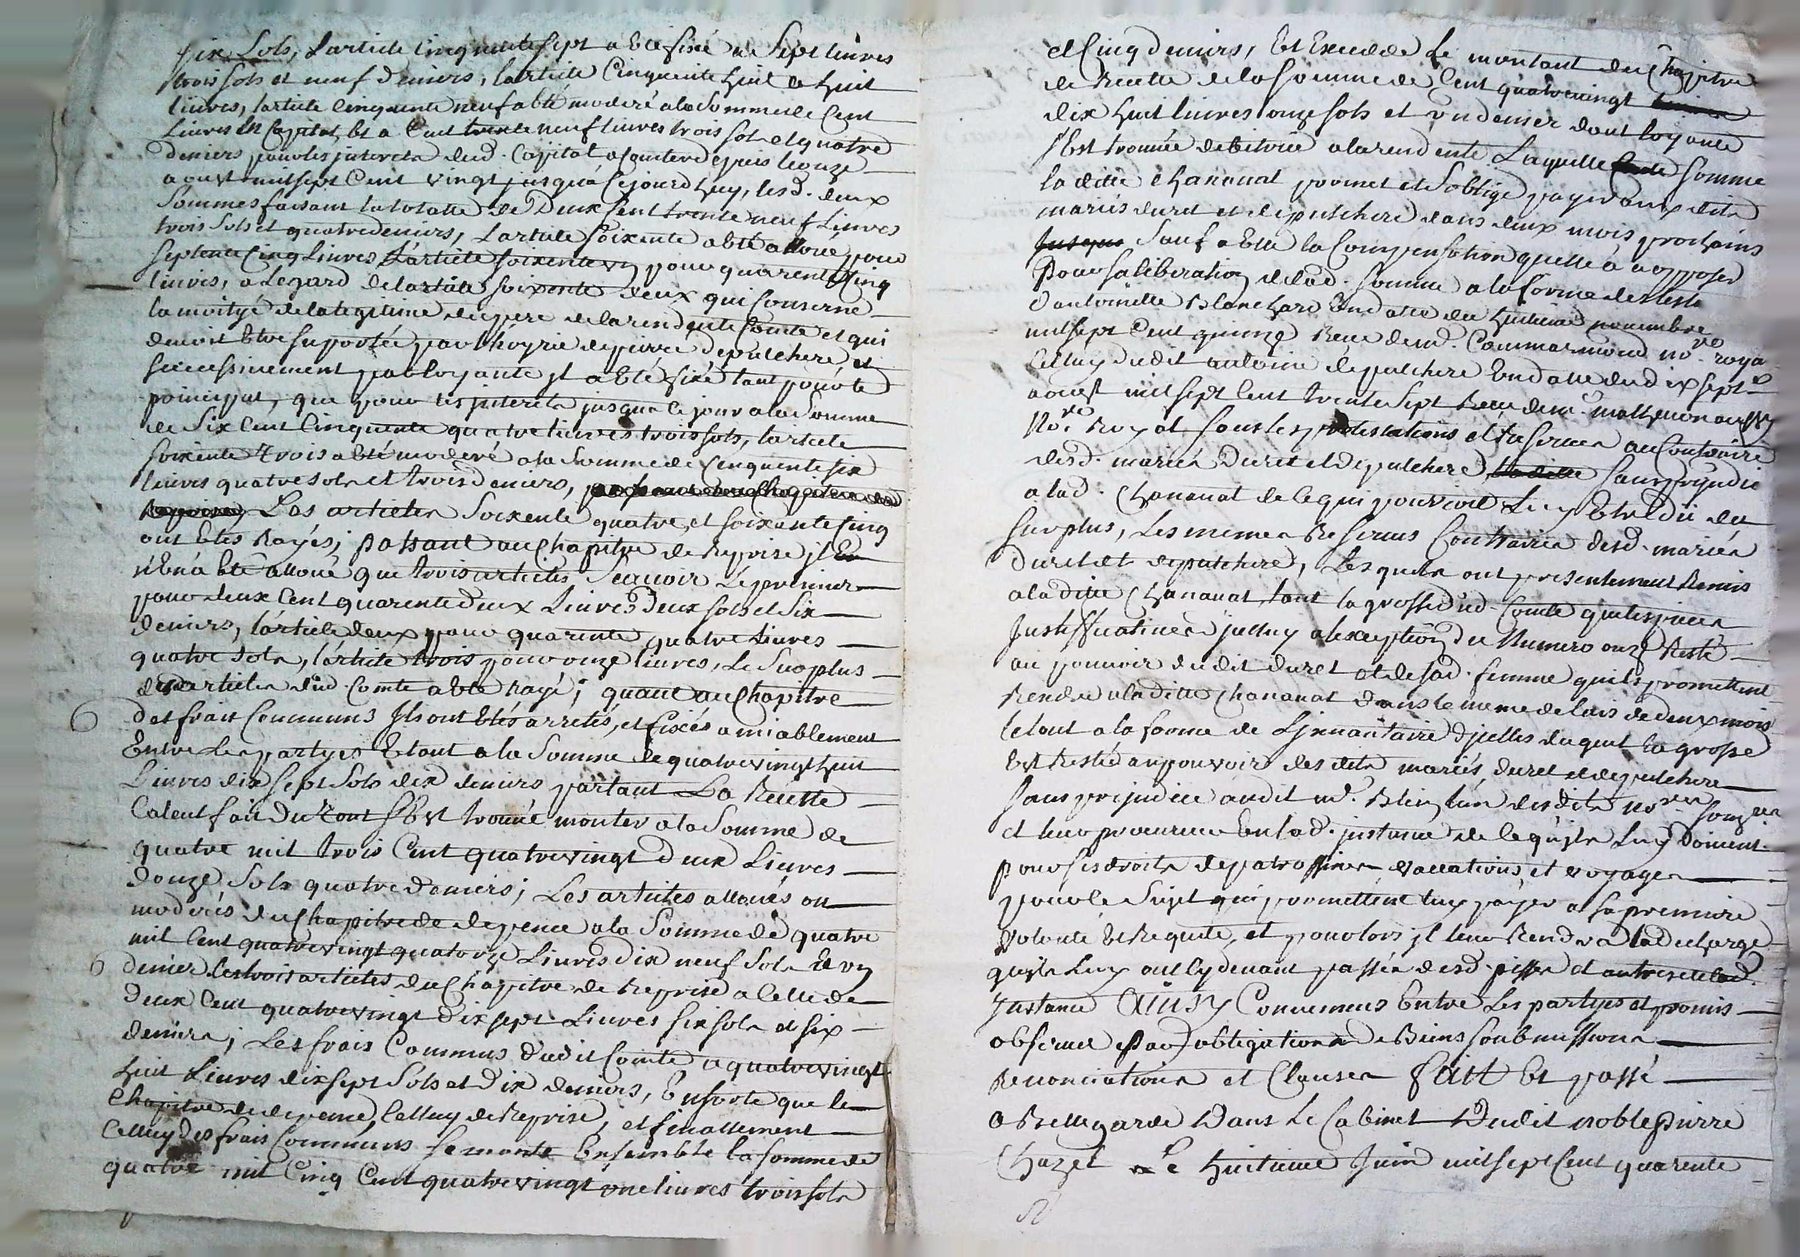 six sols, L'article Cinquante sept a Eté fixé a Sept Livres
trois sols et neuf deniers, larticle Cinquente huit a huit
livres, larticle Cinquente neuf a bté moderé a la Somme de Cent
Livres En Capital, Et a Cent trente neuf livres trois sols et quatre
deniers pour les jnterets dud. Capital a Conter depuis le onze
aoust mil sept Cent vingt jusqu'a Ce jourd'huy, lesd. deux
Sommes faisant la totalle de Deux Cent trente neuf Livres
trois Sols et quatre deniers, L'article Soixente a bté alloué pour
septente Cinq Livres L'article soixente un pour quarente Cinq
livres, a L'egard de l'article soixente deux qui Conserne
la moityé de la legitime du pere de la rendente Comte et qui
devoit Etre suportée par l'hoyrie de pierre depulchere et
successivement par l'oyante jl a bté fixé tant pour le
principal, que pour les jnterets jusqu'a Ce jour a la Somme
de Six Cent Cinquente quatre livres trois sols, larticle
Soixente trois a bté moderé a la Somme de Cinquente six
livres quatre sols et trois deniers,
Les articles Soixente quatre, et soixante Cinq
ont btés Rayés; passant au Chapitre de Reprise jl
n'En a bté alloué que trois articles, Scavoir Le premier
pour deux Cent quarente deux Livres Deux sols et Six
deniers, l'article deux pour quarente quatre Livres
quatre sols, l'article trois pour onze livres, Le Surplus
des articles dud Comte a bté rayé; quant au Chapitre
des frais Communs Jls ont btés arretés, et fixés amiablement
Entre Les partyes Etant a la Somme de quatre vingt huit
Livres dix sept Sols dix deniers partant La Recette
Calcul fait du tout s'Est trouvé monter a la Somme de
quatre mil trois Cent quatre vingt deux Livres
douze Sols quatre deniers; Les articles alloués ou
moderés du Chapitre de depence a la Somme de quatre
mil Cent quatre vingt quatorze Livres Dix neuf Sols Et un
denier Les trois articles du Chapitre de Reprise a Celle de
deux Cent quatre vingt Dix sept Livres six sols et six
deniers; Les frais Communs dudit Comte a quatre vingt
huit Livres dix sept Sols et Dix deniers, En sorte que le
Chapitre de depence, Celluy de Reprise, et finallement
Celluy des frais Communs se monte Ensemble la somme de
quatre mil Cinq Cent quatre vingt une livres trois sols
et Cinq deniers, Et Excedde Le montant du Chapitre
de Recette de la Somme de Cent quatre vingt
dix huit livres onze sols et un denier dont l'oyante
s'Est trouvée debitrice a la rendente Laquelle somme
la ditte Chananat promet et S'oblige payer aux dits
mariés duret et depulchere dans deux mois prochains
Sauf a Elle la Compensation qu'elle a a opposer
pour sa liberation de lad. somme a la forme du teste
d'antoinette Blanchard En datte du huitieme novembre
mil sept Cent quinze Recu de me. Commarmond no.re roya
Celluy dudit antoine depulchere En datte du dix sept
aoust mil sept Cent trente sept Recu de me. mathevon aussy
No.re Royal sous les protestations et reserves au Contraire
desd. mariés Duret et depulchere, sans prejudice
a lad. Chananat de Ce qui pourroit Luy Etre Dû du
surplus, Les memes Reserves Contraires desd. mariés
duret et depulchere, Lesquels ont presentement Remis
a la ditte Chananat tant la grosse dud. Comte que les pieces
Justifficatives d'jcelluy a l'exception du Numero onze Resté
au pouvoir dudit duret et de sad. femme qu'ils promettent
Rendre a la ditte Chananat dans le meme delais de deux mois
le tout a la forme de L'jnvantaire d'jcelles duquel la grosse
Est Restée au pouvoir des dits mariés, duret et depulchere
sans prejudice audit me. Blein l'un des dits no.res
et leur procureur En lad. jnstance de Ce qu'ils Luy Doivent
pour ses droits de patrossines vaccations et voyages
pour le Sujet qu'ils promettent luy payer a Sa premiere
volonté Et Requete, et pour lors jl leur Rendra la decharge
qu'ils Luy ont Cy devant passée desd. pieces et
Jnstance Ainsy Convenues Entre Les partyes et promis
observer par obligations de Biens soubmissions
Renonciations et Clauses Fait Et passé
a Bellegarde Dans Le Cabinet Dudit noble pierre
Chazel Le huitieme Juin mil sept Cent quarente